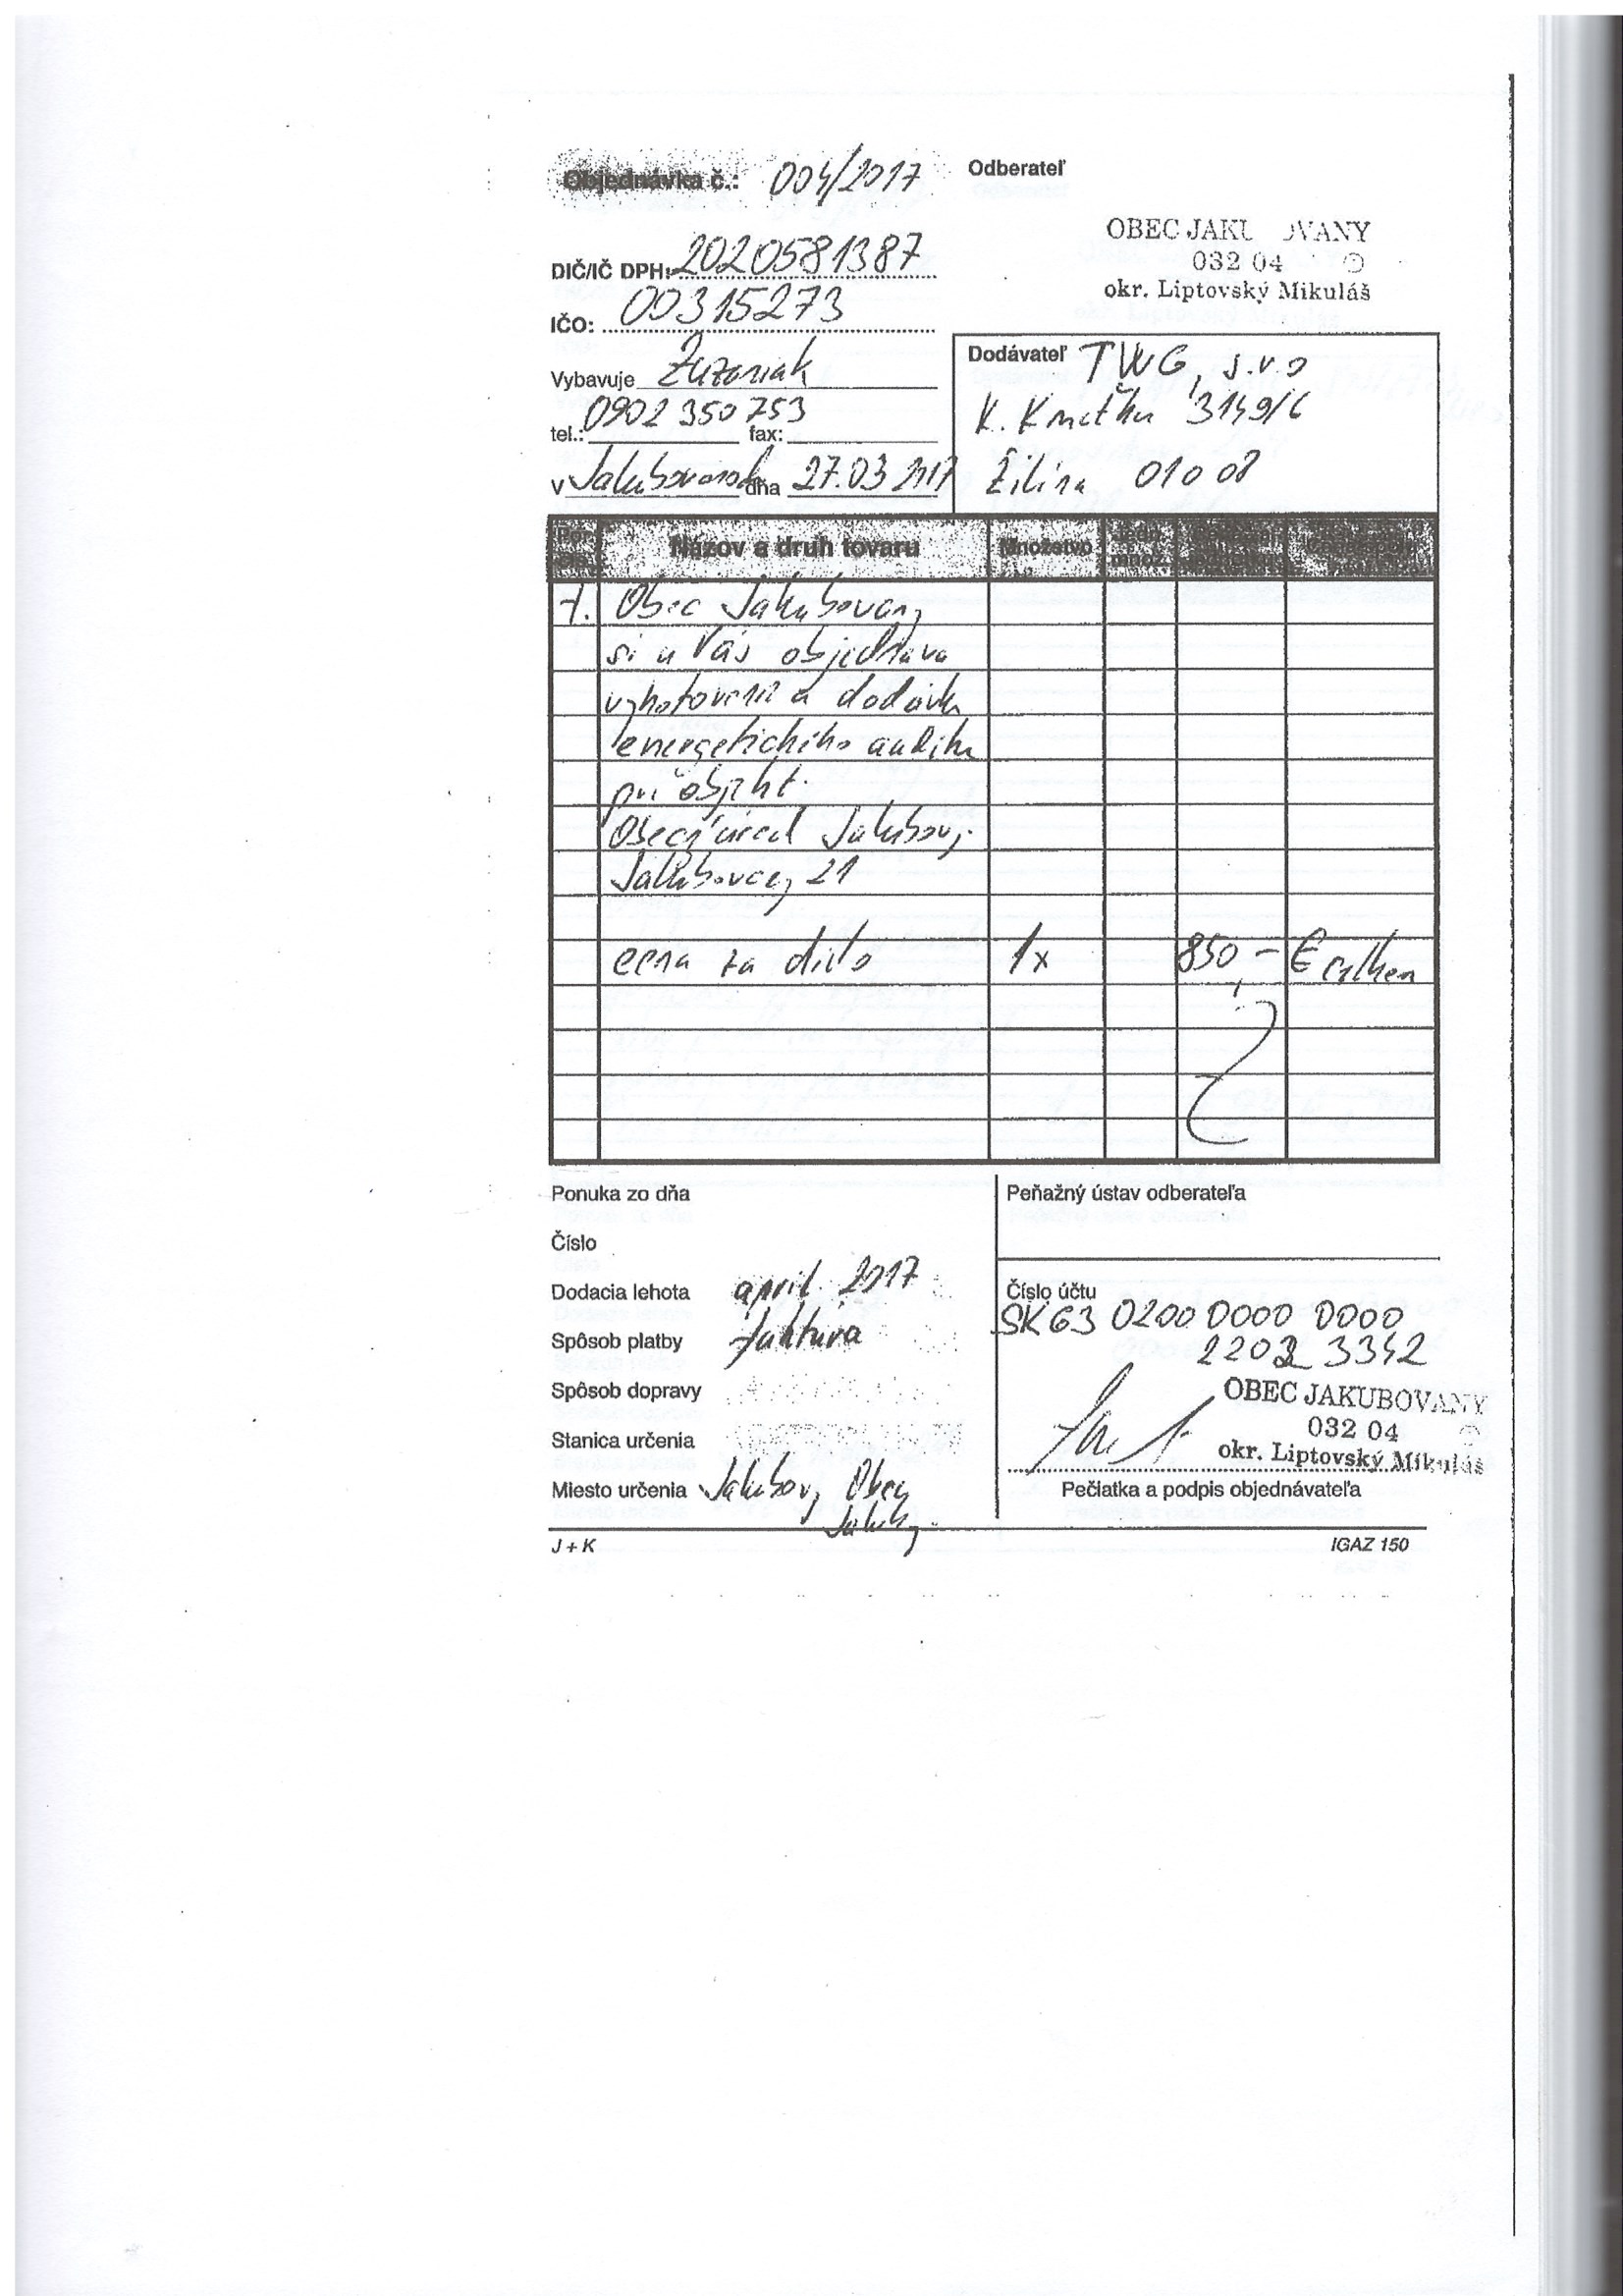 Objednávka č.: 004/2017
Odberateľ
OBEC JAKU OVANY
032 04
okr. Liptovský Mikuláš
DIČ/IČ DPH: 2020581387
IČO: 00315273
Vybavuje Žuzaniak
tel.: 0902 350 753 fax:
v Jakubovanoch dňa 27.03 2017
Dodávateľ TWG, s.r.o
K. Kmeťku 3149/6
Žilina 010 08
Názov a druh tovaru Množstvo
1. Obec Jakubovany
si u Vás objednáva
vyhotovenie a dodávku
energetického auditu
pri objekt.
Obecný úrad Jakubov.
Jakubovany 21
cena za dielo 1x 850,- € celkom
Ponuka zo dňa
Číslo
Dodacia lehota apríl 2017
Spôsob platby faktúra
Spôsob dopravy
Stanica určenia
Miesto určenia Jakubov, Obec
Jakub.
Peňažný ústav odberateľa
Číslo účtu
SK63 0200 0000 0000
2202 3342
OBEC JAKUBOVANY
032 04
okr. Liptovský Mikuláš
Pečiatka a podpis objednávateľa
J + K
IGAZ 150